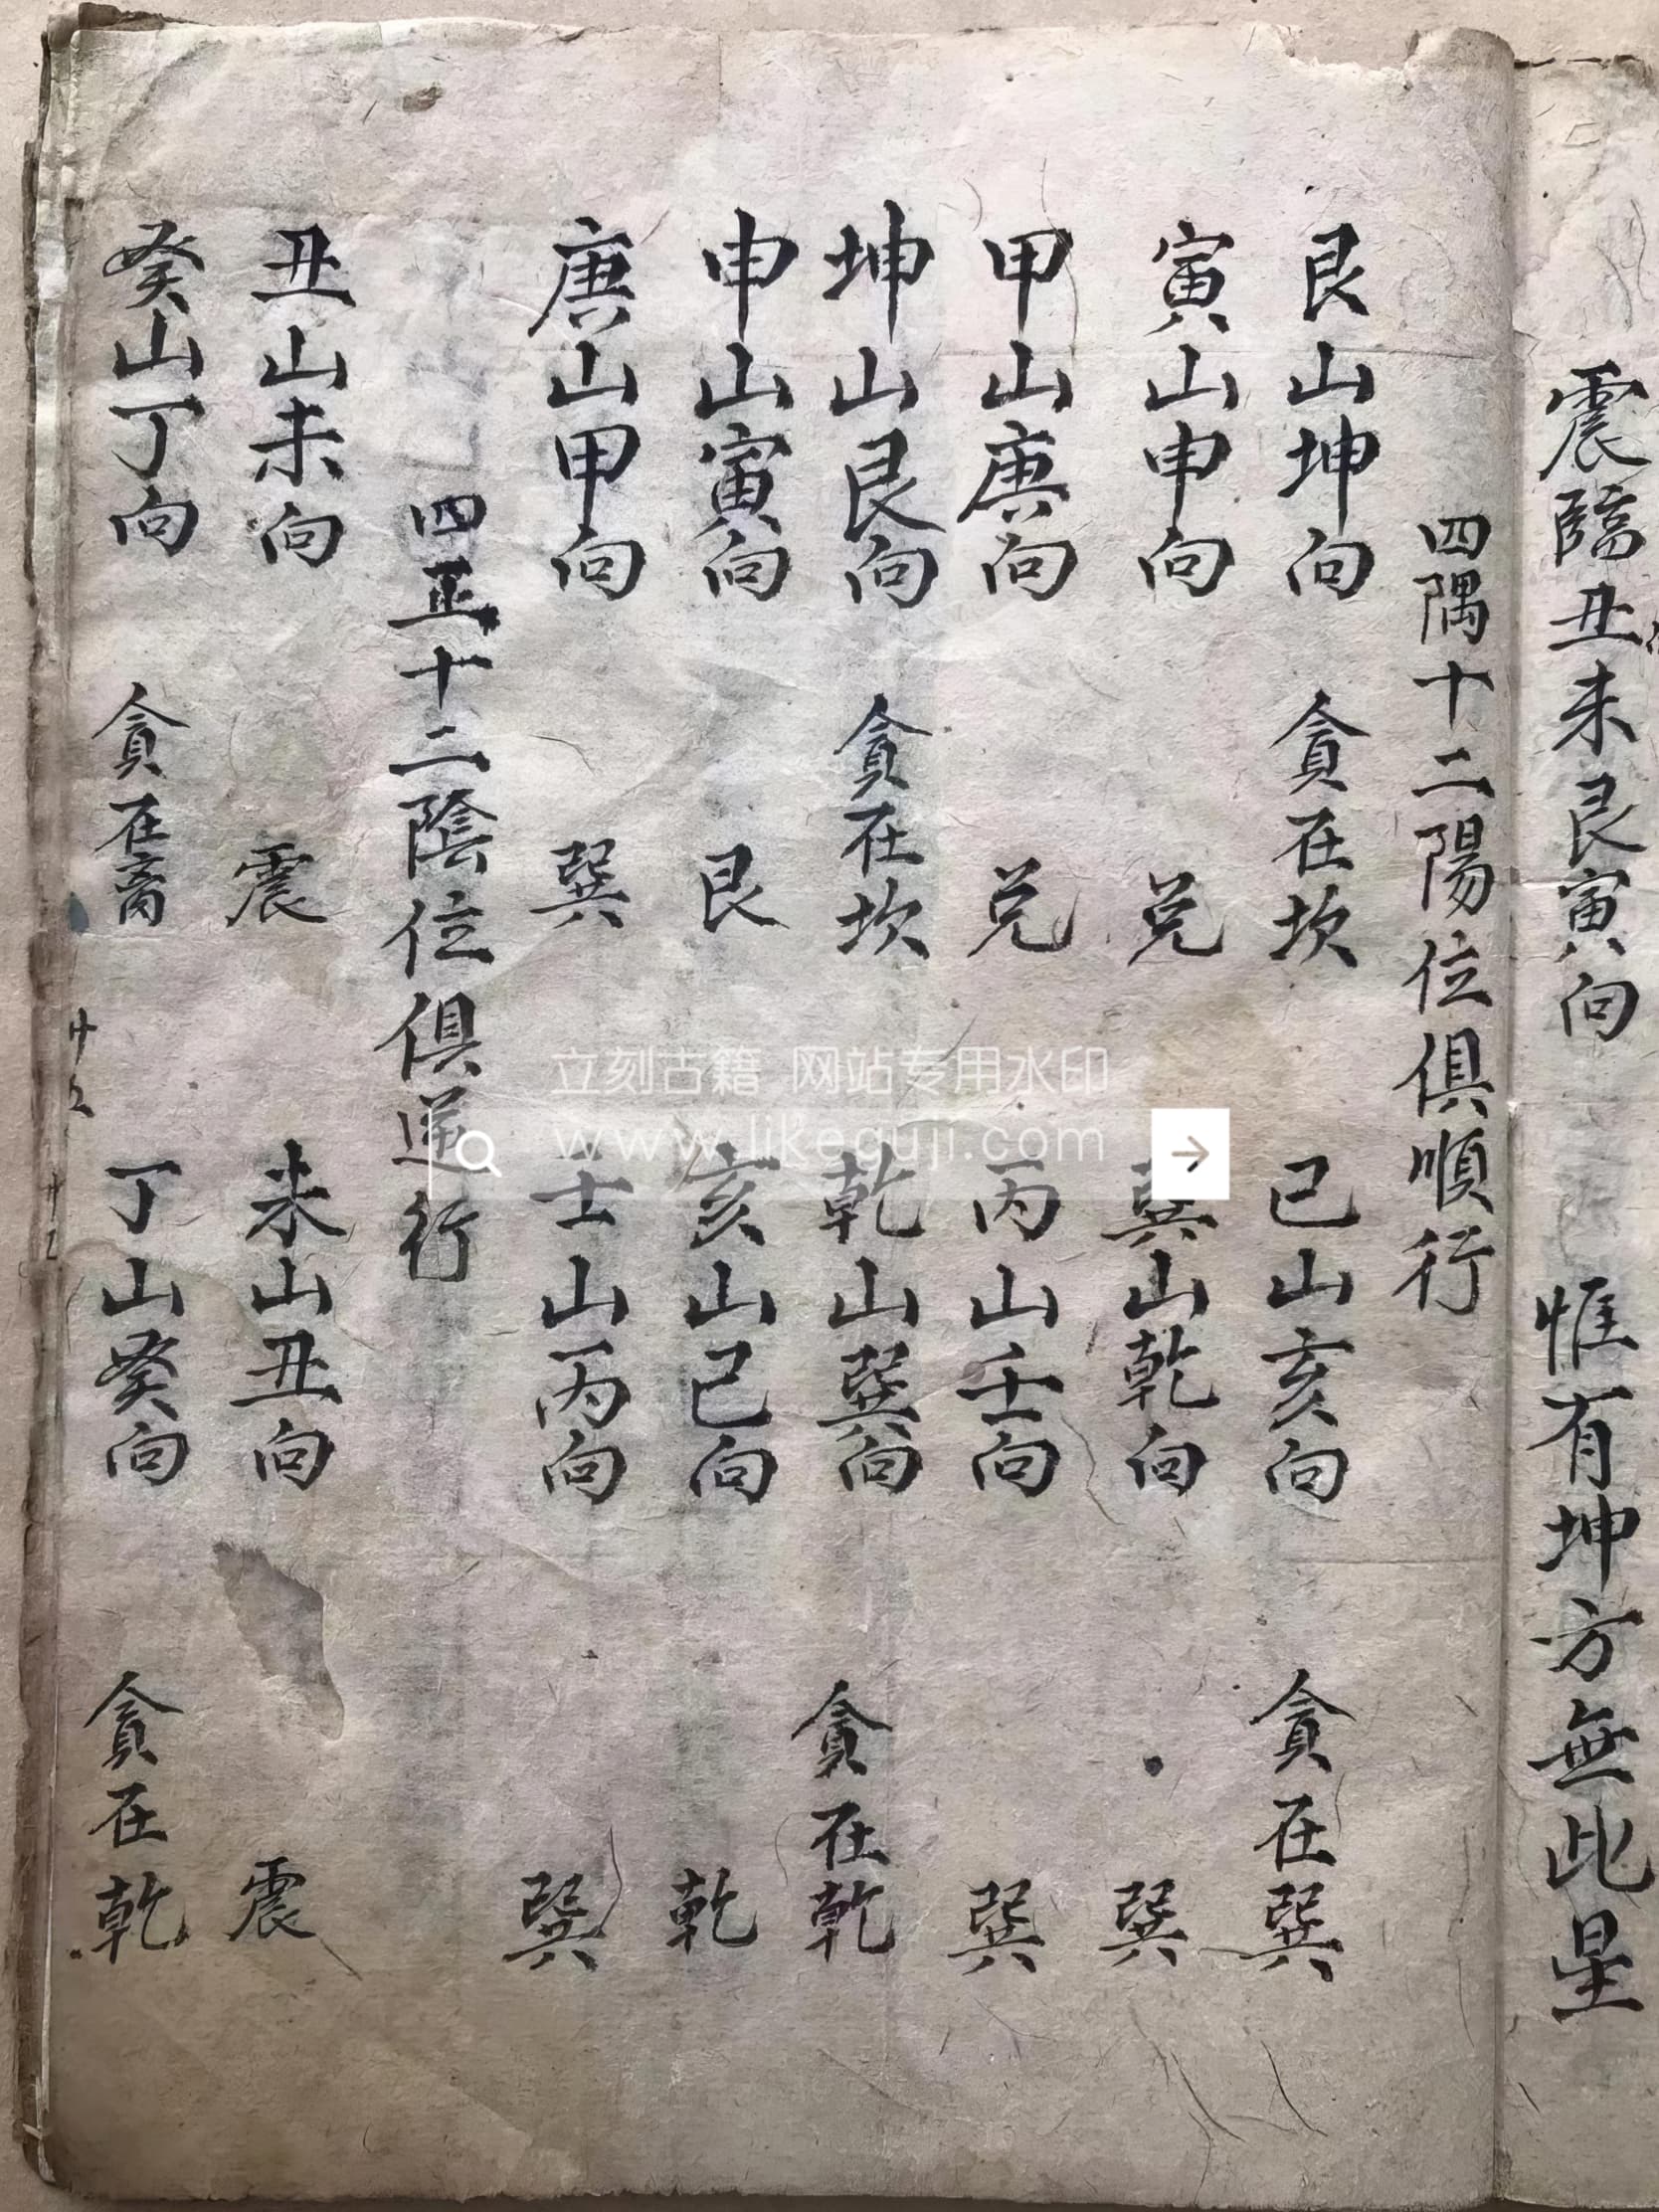 震臨丑未艮寅向 惟有坤方無此星
四隅十二陽位俱順行
艮山坤向 貪在坎 巳山亥向 貪在巽
寅山申向 兌 巽山乾向 巽
甲山庚向 兌 丙山壬向 巽
坤山艮向 貪在坎 乾山巽向 貪在乾
申山寅向 艮 亥山巳向 乾
庚山甲向 巽 士山丙向 巽
四正十二陰位俱逆行
丑山未向 震 未山丑向 震
癸山丁向 貪在 丁山癸向 貪在乾
立刻古籍 网站专用水印
www.likeguji.com